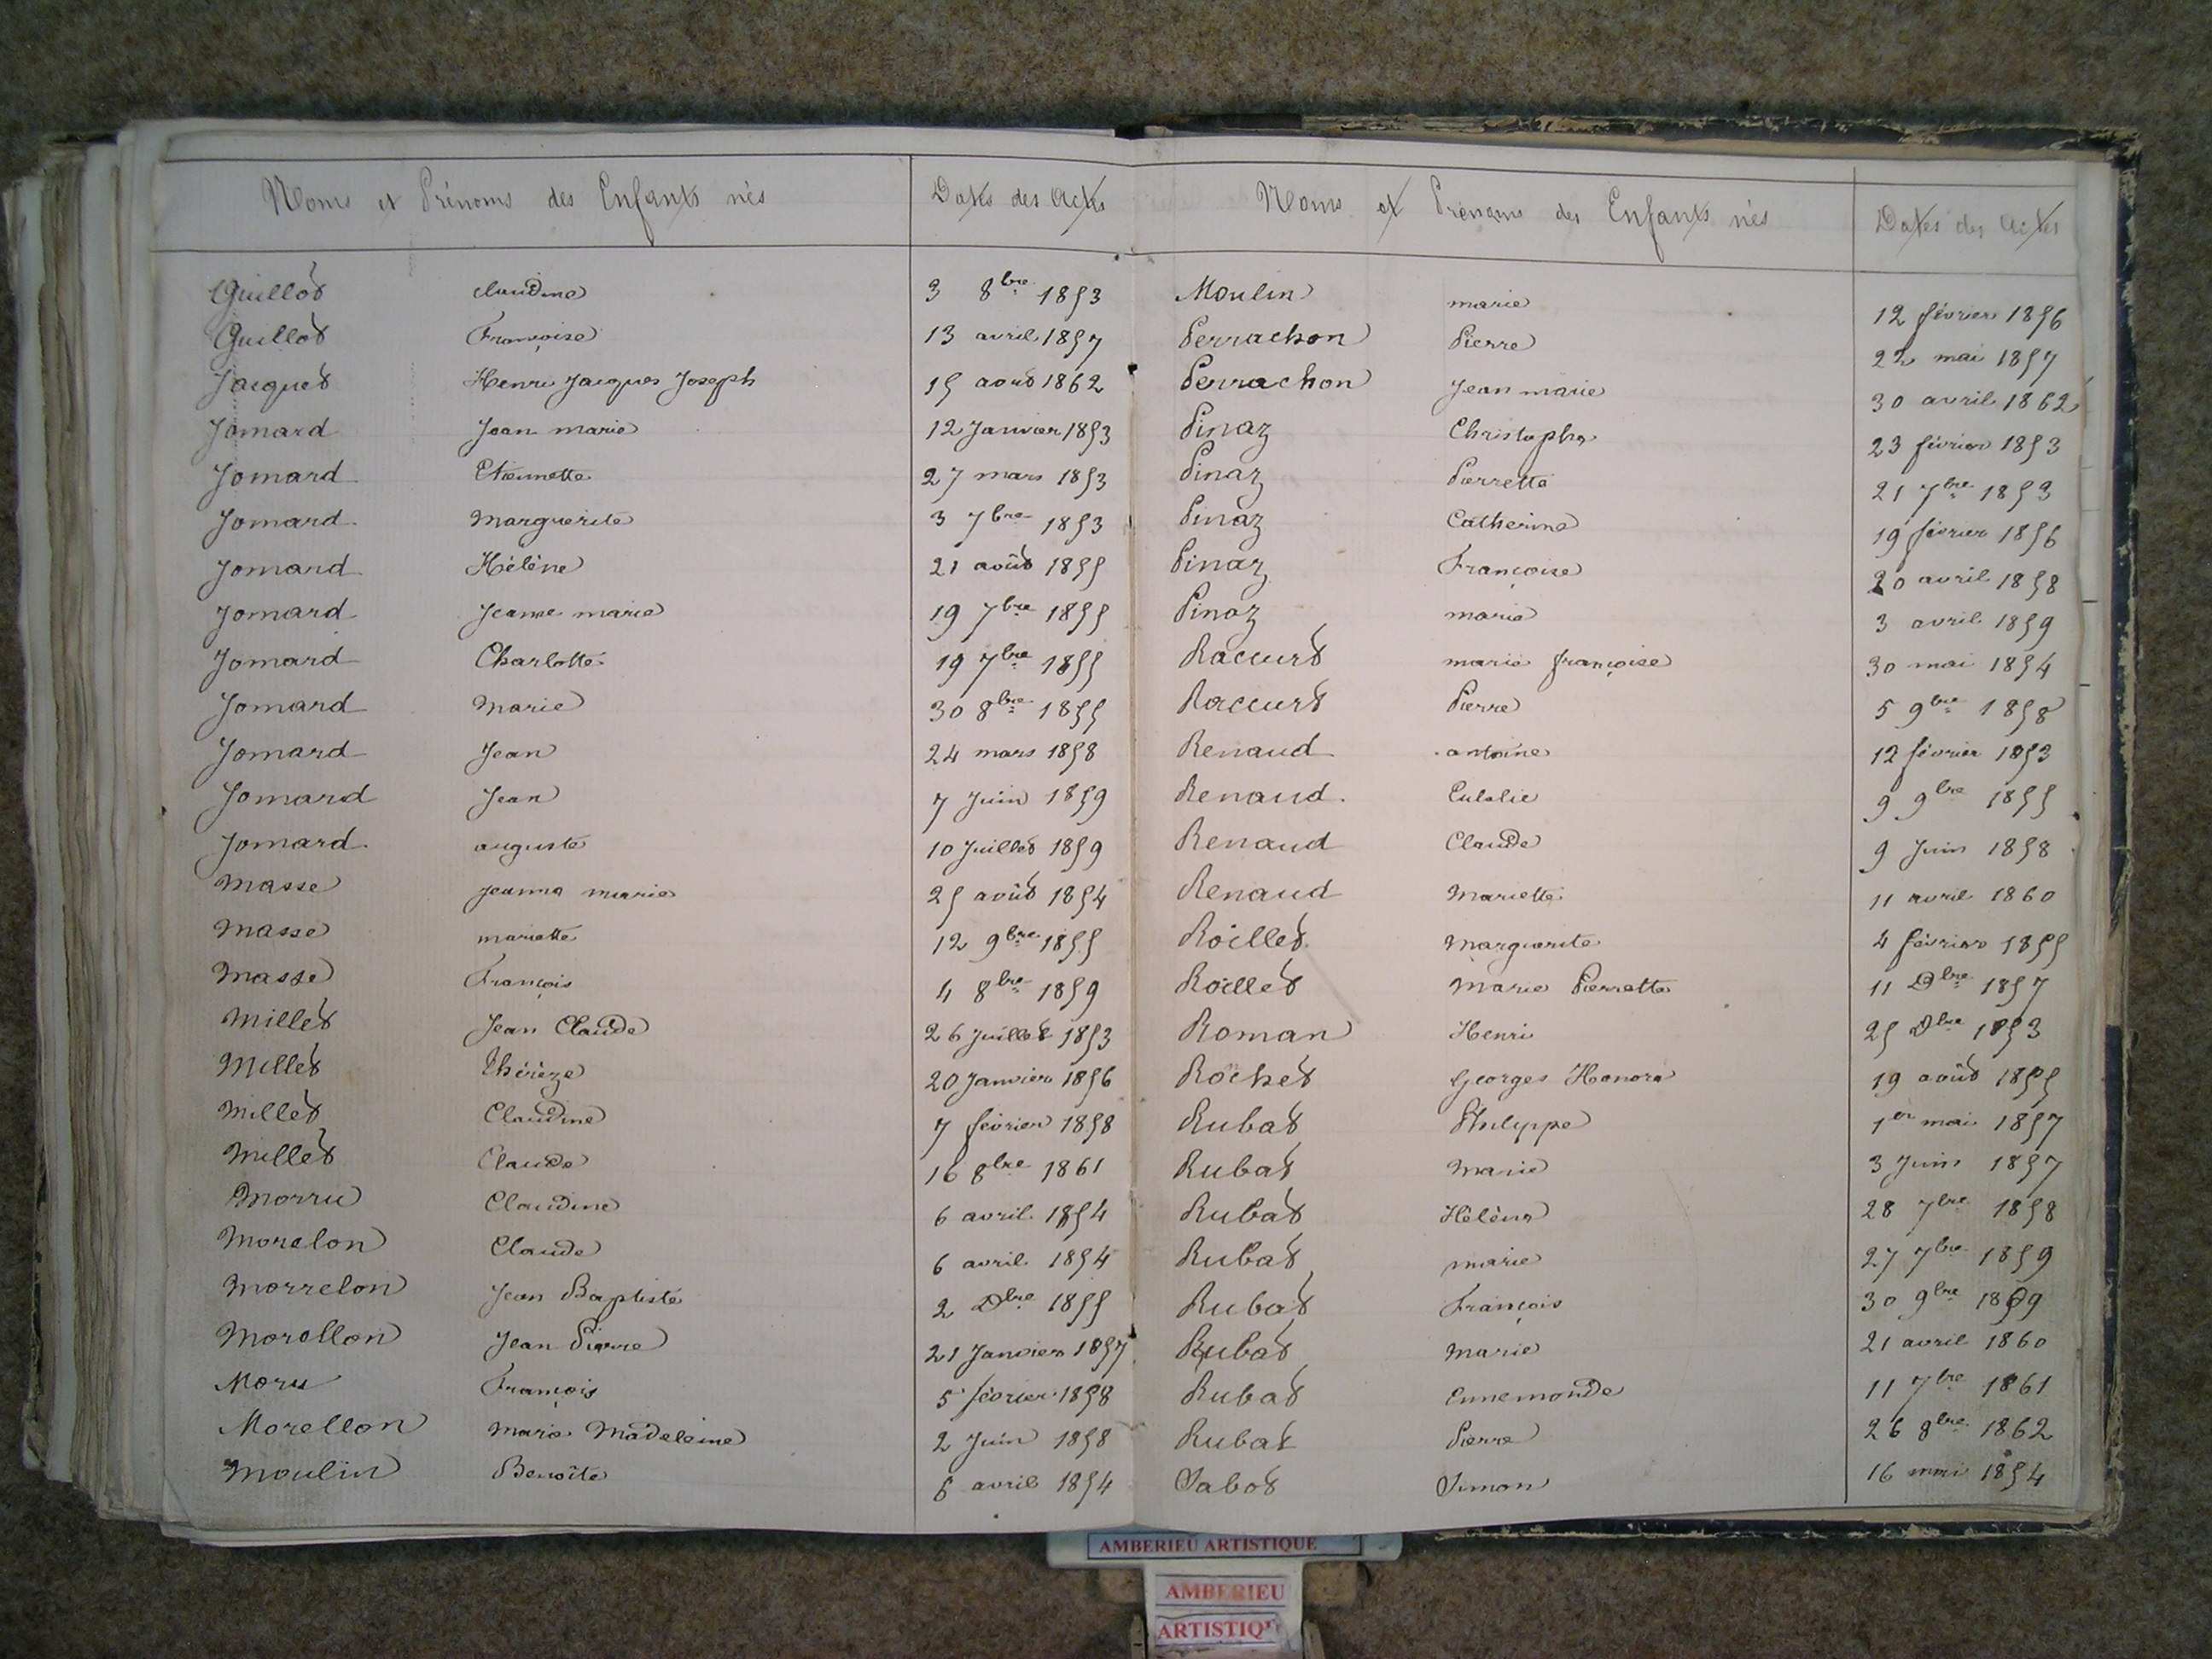 Noms et Prénoms des Enfants nés Dates des Actes
Guillot claudine 3 8bre 1853
Guillot Françoise 13 avril 1857
Jacquet Henri Jacques Joseph 15 aout 1862
Jomard Jean marie 12 Janvier 1853
Jomard Etiennette 27 mars 1853
Jomard Marguerite 3 7bre 1853
Jomard Hélène 21 août 1855
Jomard Jeanne marie 19 7bre 1855
Jomard Charlotte 19 7bre 1855
Jomard Marie 30 8bre 1855
Jomard Jean 24 mars 1858
Jomard Jean 7 Juin 1859
Jomard auguste 10 Juillet 1859
Masse jeanne marie 25 août 1854
Masse mariette 12 9bre 1855
Masse François 4 8bre 1859
Millet Jean Claude 26 Juillet 1853
Millet Thérèze 20 Janvier 1856
Millet Claudine 7 février 1858
Millet Claude 16 8bre 1861
Morru Claudine 6 avril 1854
Morelon Claude 6 avril 1854
Morrelon Jean Baptiste 2 Dbre 1855
Morellon Jean Pierre 21 Janvier 1857
Moru François 5 février 1858
Morellon Marie Madeleine 2 Juin 1858
Moulin Benoîte 6 avril 1854
Noms et Prénoms des Enfants nés Dates des Actes
Moulin marie 12 février 1856
Perrachon Pierre 22 mai 1857
Perrachon Jean marie 30 avril 1862
Pinaz Christophe 23 février 1853
Pinaz Pierrette 21 7bre 1853
Pinaz Catherine 19 février 1856
Pinaz Françoise 20 avril 1858
Pinaz marie 3 avril 1859
Raccurt marie françoise 30 mai 1854
Raccurt Pierre 5 9bre 1858
Renaud antoine 12 février 1853
Renaud Eulalie 9 9bre 1855
Renaud Claude 9 Juin 1858
Renaud Mariette 11 avril 1860
Roillet Marguerite 4 février 1855
Roillet Marie Pierrette 11 Dbre 1857
Roman Henri 25 Dbre 1853
Rochet Georges Honoré 19 août 1855
Rubat Philippe 1er mai 1857
Rubat Marie 3 Juin 1857
Rubat Hélène 28 7bre 1858
Rubat marie 27 7bre 1859
Rubat François 30 9bre 1859
Rubat Marie 21 avril 1860
Rubat Ennemonde 11 7bre 1861
Rubat Pierre 26 8bre 1862
Sabot Simon 16 mai 1854
AMBERIEU ARTISTIQUE
AMBERIEU
ARTISTIQU